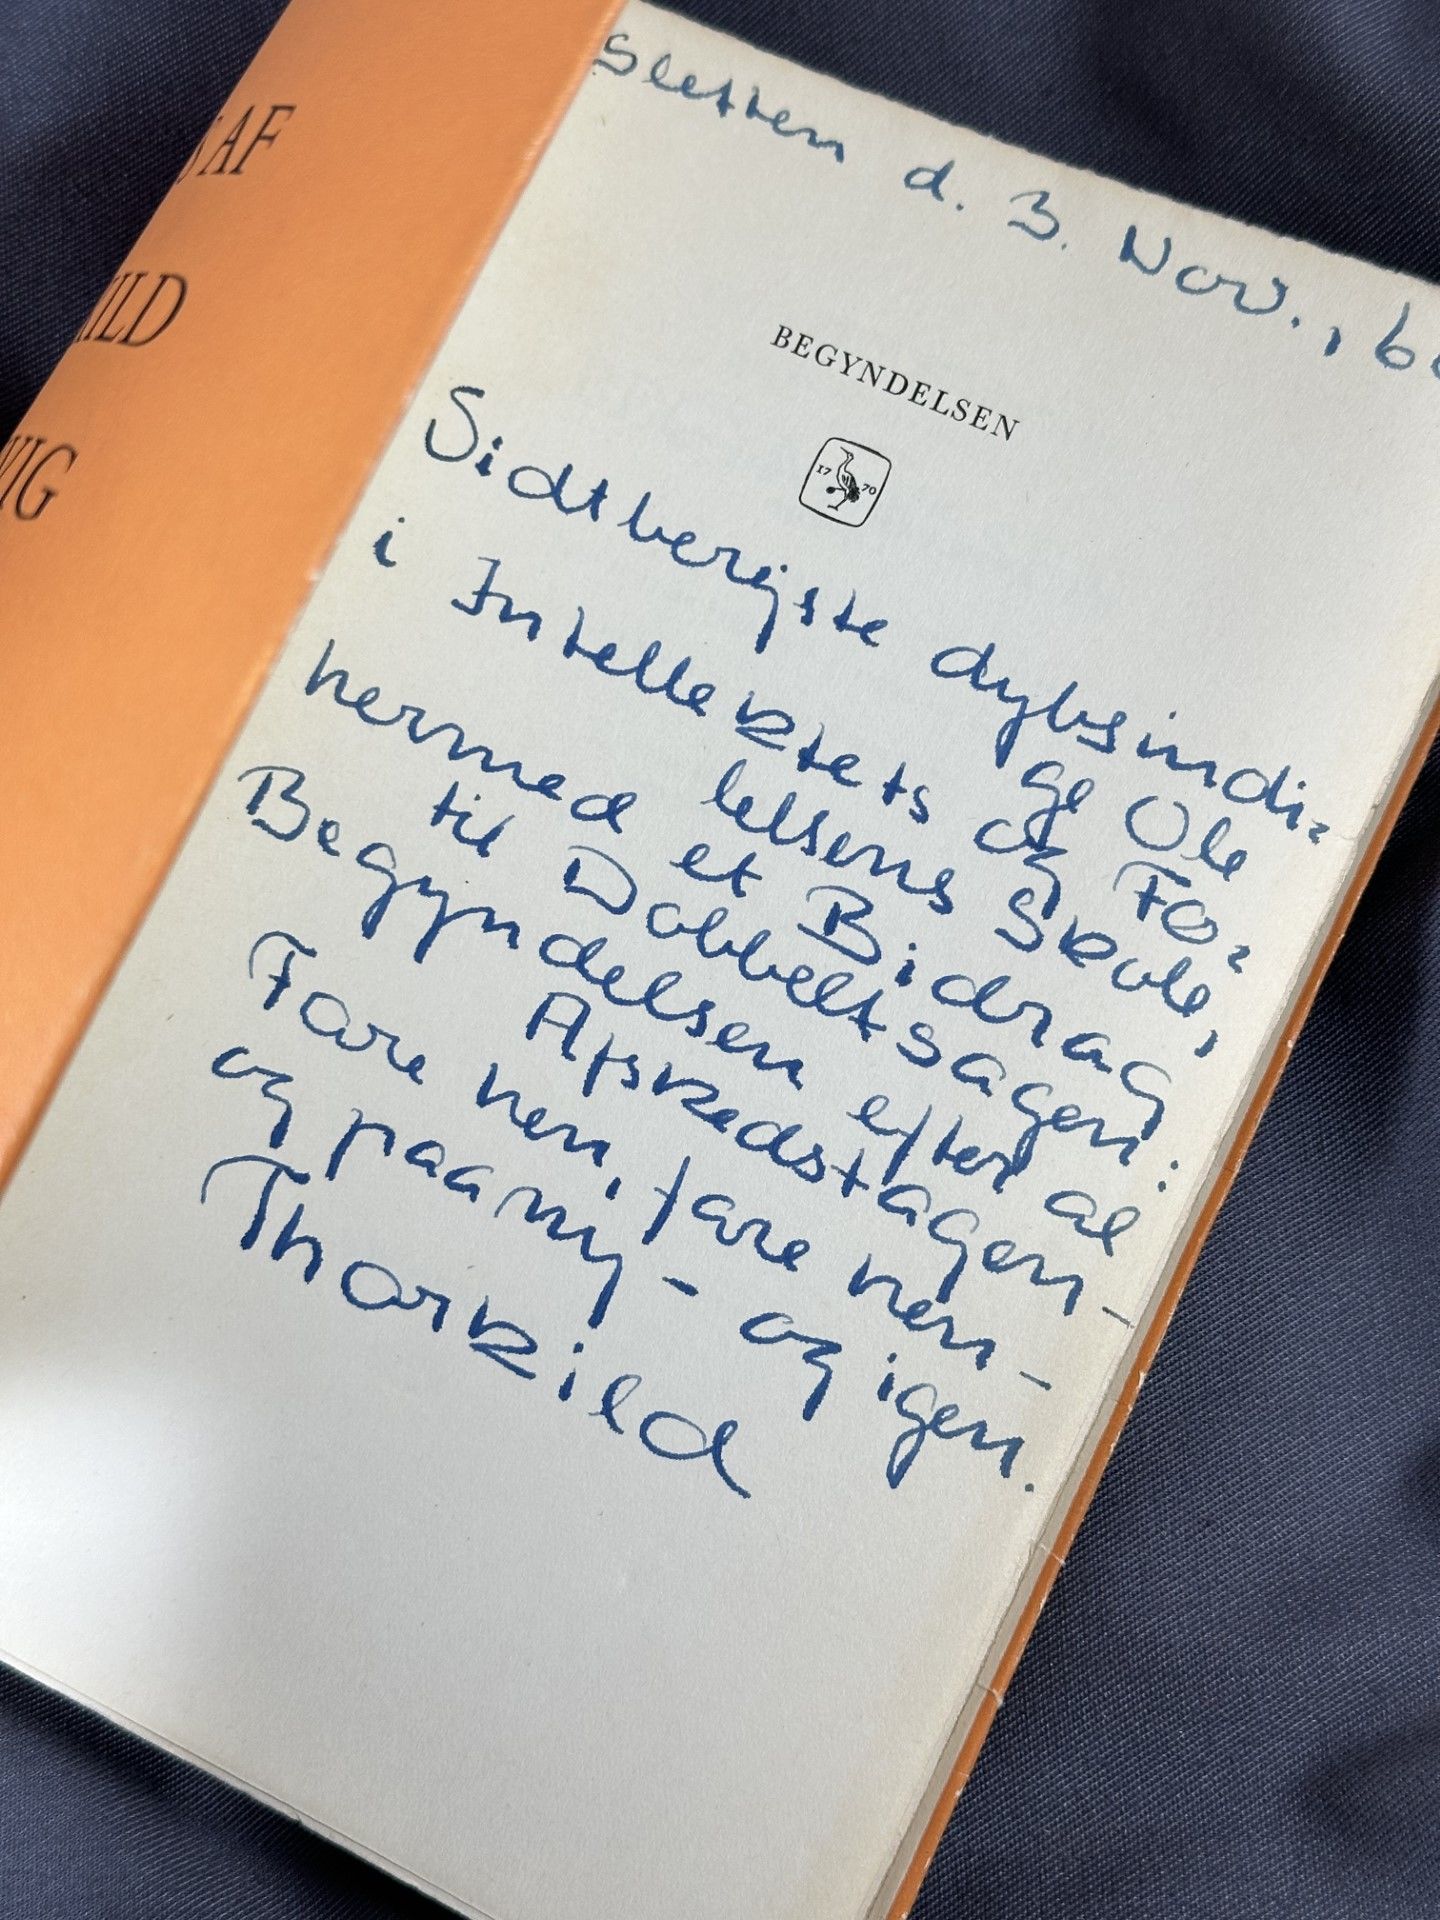 AF
ILD
VIG
Sletten d. 3. Nov., 6
BEGYNDELSEN
17 70
Sidtberejste dybsindi=
ge Ole
i Intellektets og Fø=
lelsens Skole,
hermed et Bidrag
til Dobbeltsagen:
Begyndelsen efter al
Afskedstagen-
Fare hen, fare hen-
og paany - og igen.
Thorkild